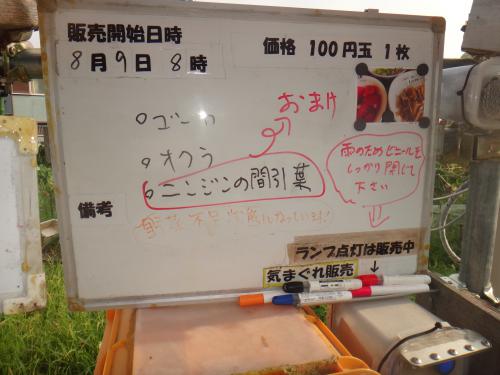 販売開始日時
8月9日 8時
価格 100円玉 1枚
おまけ
オクラ
ニンジンの間引葉
雨のためビニールを
しっかり閉じて
下さい
備考
ランプ点灯は販売中
気まぐれ販売